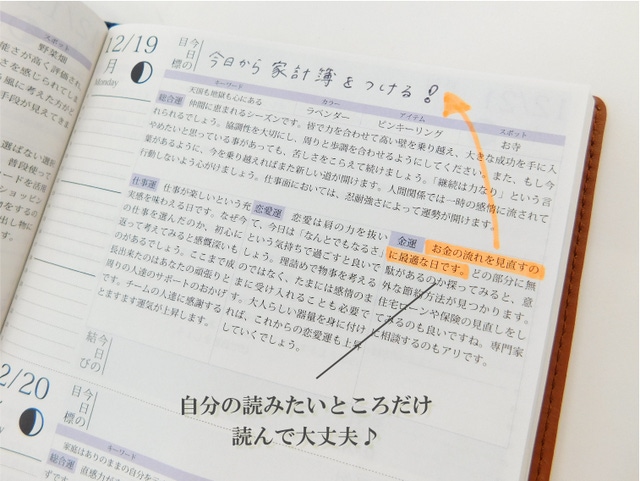 スポット
野菜畑
能さが高く評価され
さを感じられてしま
風に考えた方がラ
手段が見えてきま
選ばない選択
12/19
月
Monday
今日の目標
今日から家計簿をつける!
キーワード
カラー
アイテム
スポット
天国も地獄も心にある
ラベンダー
ピンキーリング
お寺
総合運
仲間に恵まれるシーズンです。皆で力を合わせて高い壁を乗り越え、大きな成功を手に入
れられるでしょう。協調性を大切にし、周りと歩調を合わせるようにしてください。また、もし今
やめたいと思っている事があっても、苦しさをこらえて続けましょう。「継続は力なり」という言
葉があるように、今を乗り越えればまた新しい道が開けます。人間関係では一時の感情に流されて
行動しないよう心がけましょう。仕事面においては、忍耐強さによって運勢が開けます。
仕事運
仕事が楽しいという充
実感を味わえる日です。なぜ今
の仕事を選んだのか、初心に
返って考えてみると感慨深いも
のがあるでしょう。ここまで成
長出来たのはあなたの頑張りと
周りの人達のサポートのおかげ
です。チームの人達に感謝する
とますます運気が上昇します。
恋愛運
恋愛は肩の力を抜い
て、今日は「なんとでもなるさ」
という気持ちで過ごすと良いで
しょう。理詰めで物事を考える
のではなく、たまには感情のま
まに受け入れることも必要で
す。大人らしい器量を身に付け
れば、これからの恋愛運も上昇
していくでしょう。
金運
お金の流れを見直すの
に最適な日です。どの部分に無
駄があるのか探ってみると、意
外な節約方法が見つかります。
住宅ローンや保険の見直しをし
てみるのも良いですね。専門家
に相談するのもアリです。
今日の結び
自分の読みたいところだけ
読んで大丈夫♪
12/20
今日の目標
キーワード
総合運